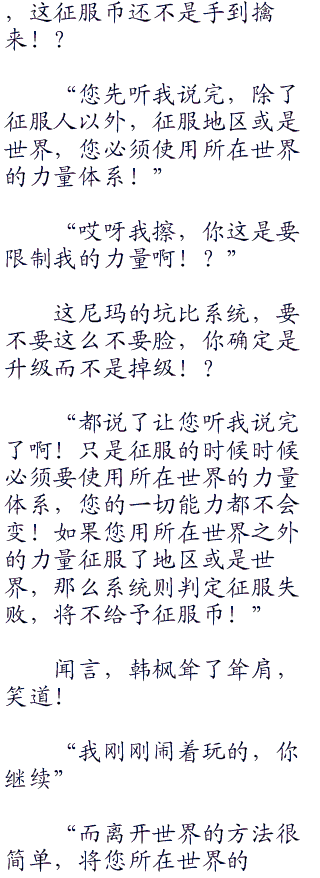 ，这征服币还不是手到擒
来！？
“您先听我说完，除了
征服人以外，征服地区或是
世界，您必须使用所在世界
的力量体系！”
“哎呀我擦，你这是要
限制我的力量啊！？”
这尼玛的坑比系统，要
不要这么不要脸，你确定是
升级而不是掉级！？
“都说了让您听我说完
了啊！只是征服的时候时候
必须要使用所在世界的力量
体系，您的一切能力都不会
变！如果您用所在世界之外
的力量征服了地区或是世
界，那么系统则判定征服失
败，将不给予征服币！”
闻言，韩枫耸了耸肩，
笑道！
“我刚刚闹着玩的，你
继续”
“而离开世界的方法很
简单，将您所在世界的